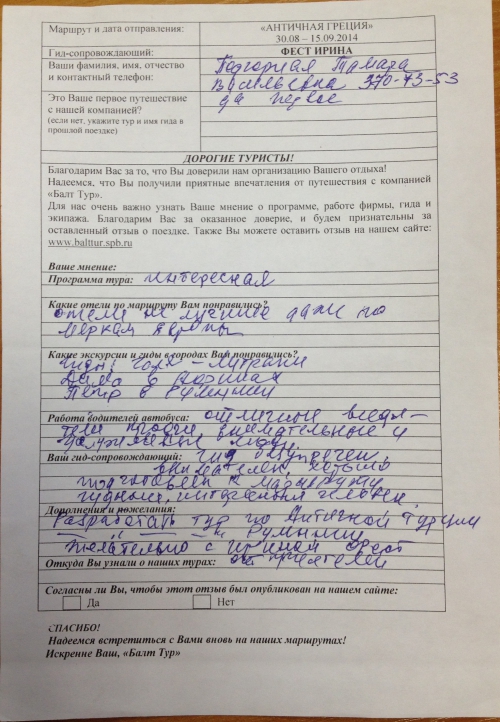 Маршрут и дата отправления:
«АНТИЧНАЯ ГРЕЦИЯ»
30.08 – 15.09.2014
Гид-сопровождающий:
ФЕСТ ИРИНА
Ваши фамилия, имя, отчество
и контактный телефон:
Подгорная Тамара
Васильевна 370-73-53
Это Ваше первое путешествие
с нашей компанией?
(если нет, укажите тур и имя гида в
прошлой поездке)
да первое
ДОРОГИЕ ТУРИСТЫ!
Благодарим Вас за то, что Вы доверили нам организацию Вашего отдыха!
Надеемся, что Вы получили приятные впечатления от путешествия с компанией
«Балт Тур».
Для нас очень важно узнать Ваше мнение о программе, работе фирмы, гида и
экипажа. Благодарим Вас за оказанное доверие, и будем признательны за
оставленный отзыв о поездке. Также Вы можете оставить отзыв на нашем сайте:
www.balttur.spb.ru
Ваше мнение:
Программа тура: интересная
Какие отели по маршруту Вам понравились?
отели не лучшие даже по
меркам Европы
Какие экскурсии и гиды в городах Вам понравились?
гиды:
Дама в Афинах
Петр в Румынии
Работа водителей автобуса: отличные води-
тели внимательные и
люди.
Ваш гид-сопровождающий: гид безупречен,
внимателен, хорошо
подготовлен к маршруту
человек.
Дополнения и пожелания:
Разработать тур по Античной Турции
Румынии
желательно с Ириной Фест
Откуда Вы узнали о наших турах: от приятелей
Согласны ли Вы, чтобы этот отзыв был опубликован на нашем сайте:
Да Нет
СПАСИБО!
Надеемся встретиться с Вами вновь на наших маршрутах!
Искренне Ваш, «Балт Тур»